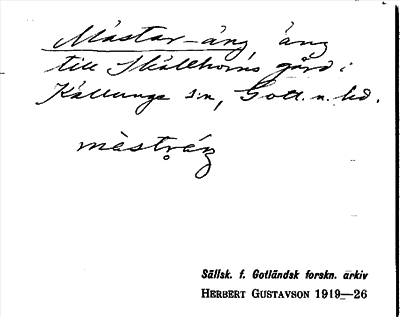 Mástar-äng, äng
till Skállhorns gård i
Källunge s:n, Gotl. n. hd.
mèstṛáŋ
Sällsk. f. Gotländsk forskn. arkiv
HERBERT GUSTAVSON 1919—26